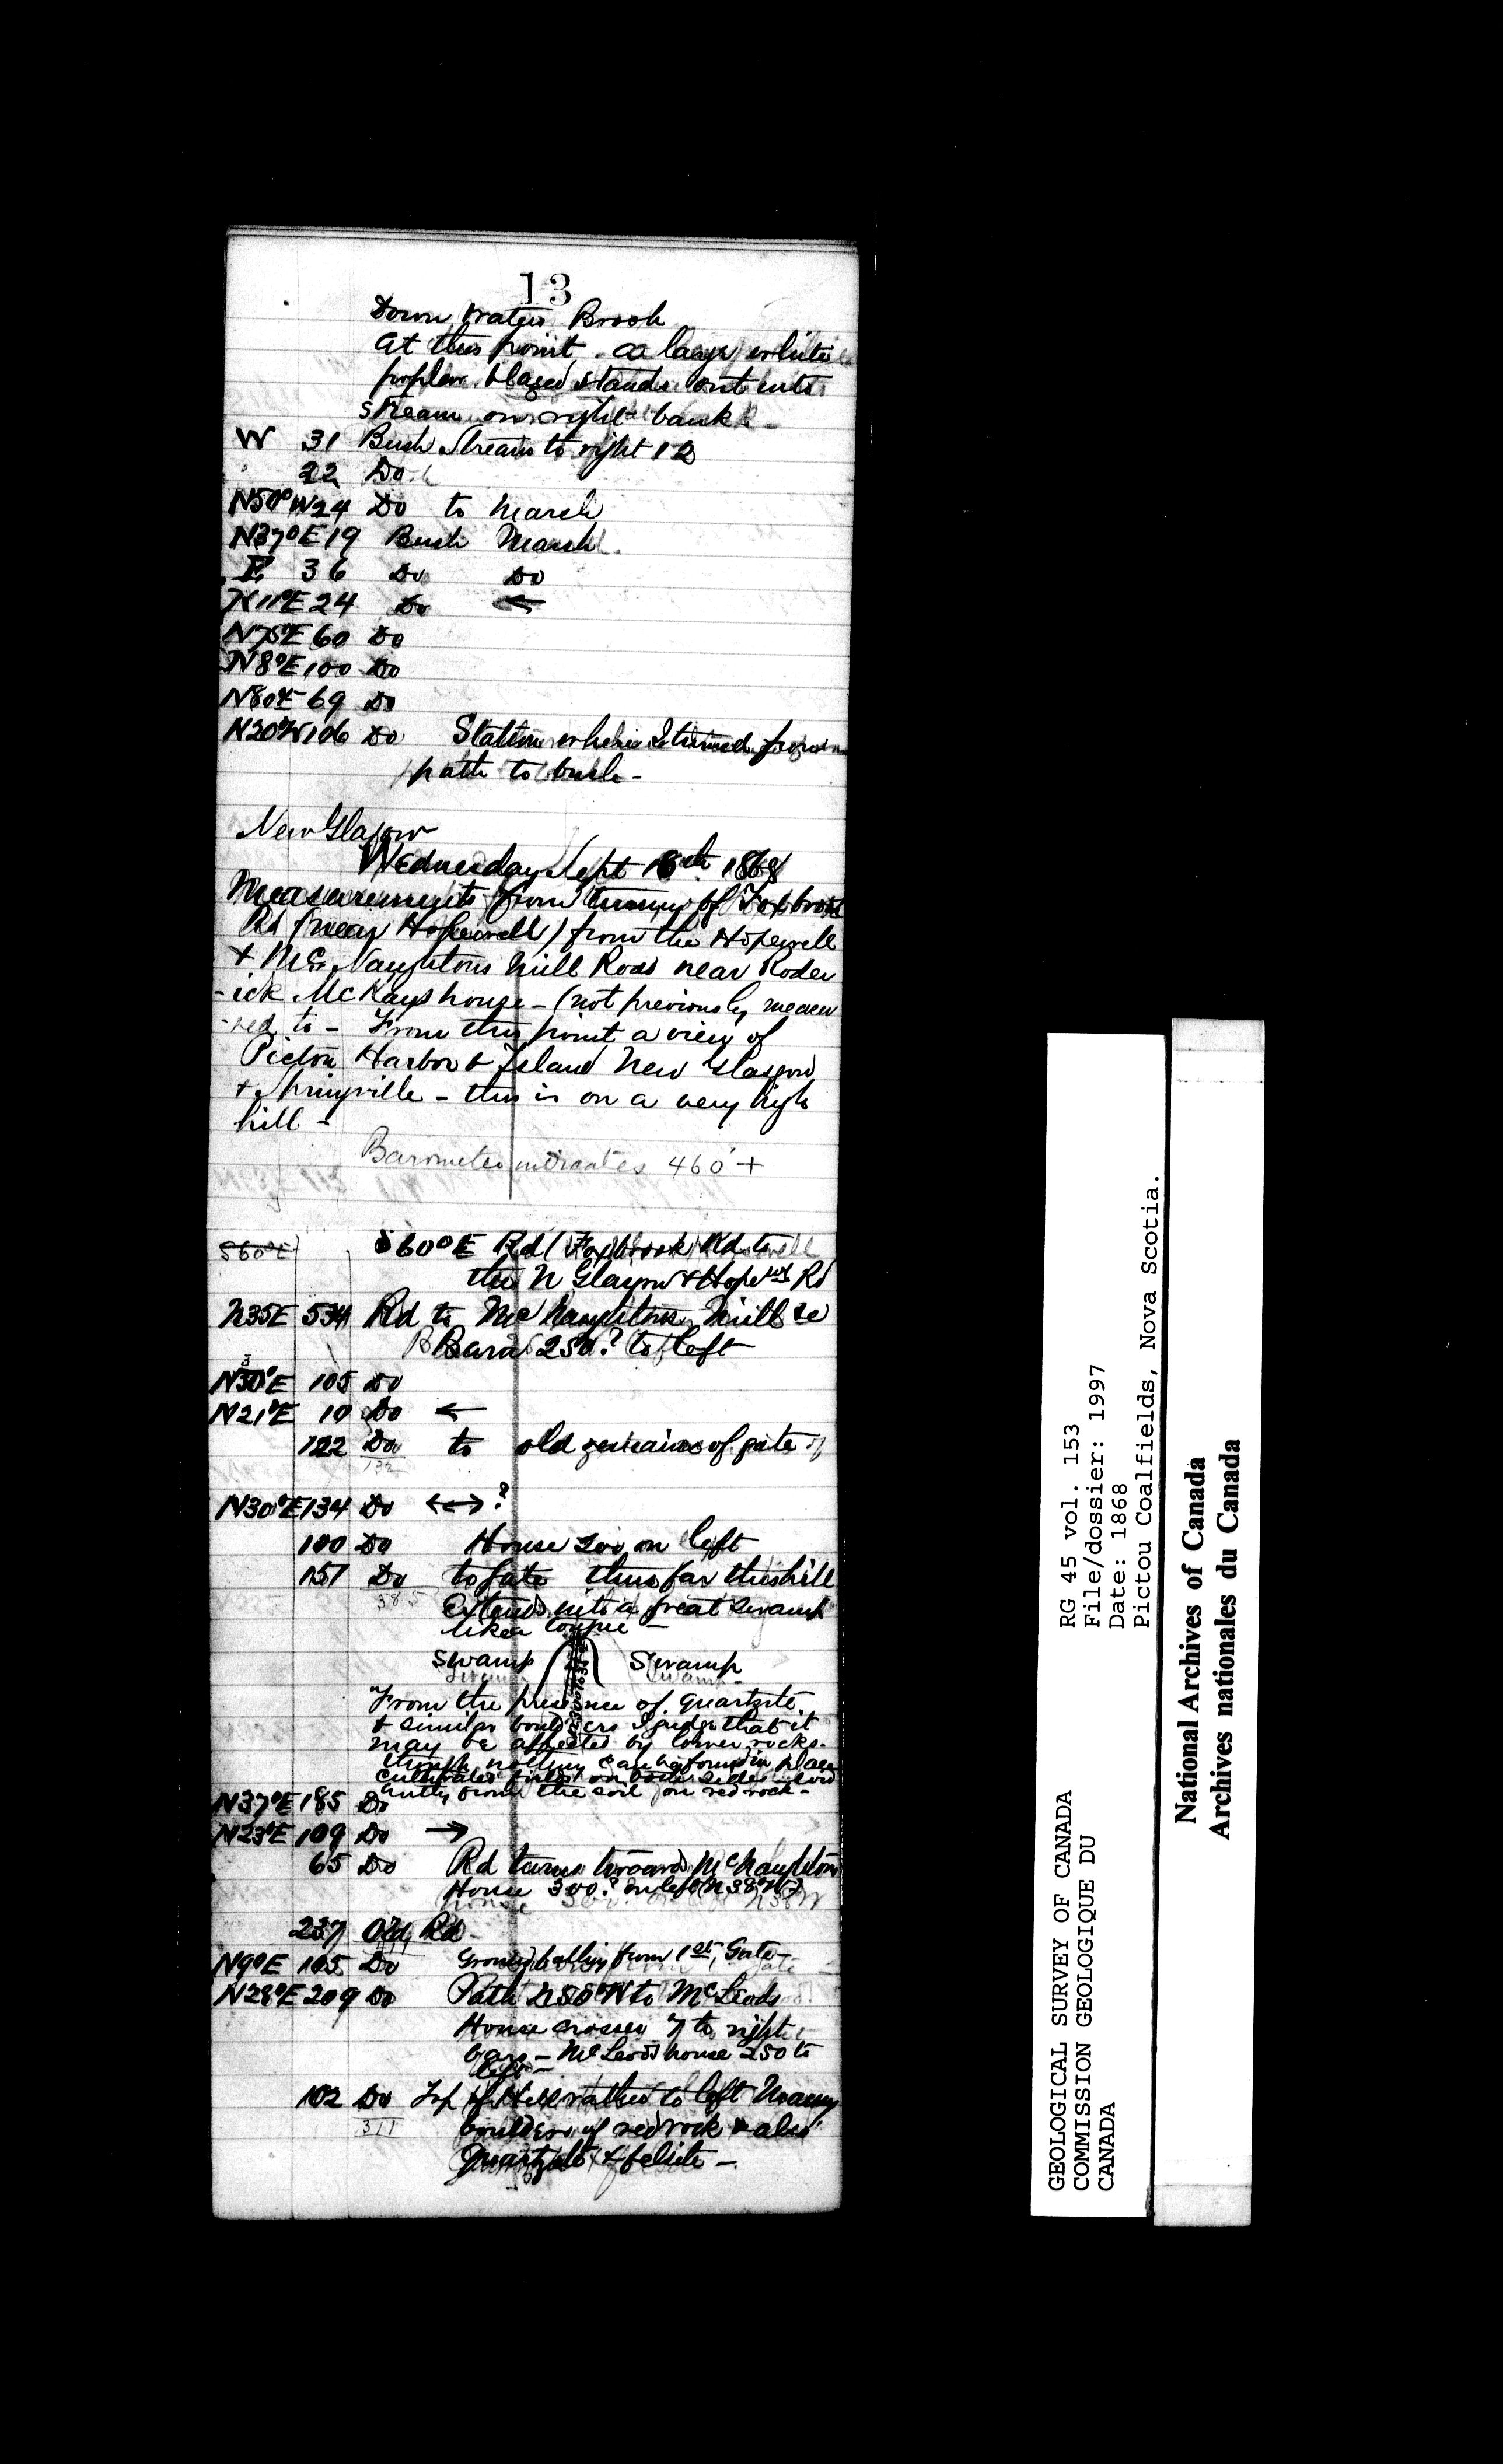 13
Down Brook
At this point a large white
poplar blazed stands out into
stream on right bank -
W 31 Bush Stream to right 12
" 22 Do
N50°W 24 Do to Marsh
N37°E 19 Bush Marsh
E 36 Do Do
N11°E 24 Do ←
N75°E 60 Do
N8°E 100 Do
N80E 69 Do
N20°W 106 Do Station where I turned from
path to bush -
New Glasgow
Wednesday Sept 16th 1868
Measurements from turning of Foxbrook
Rd (near Hopewell) from the Hopewell
+ McNaughtons Mill Road near Roder
-ick McKays house - (not previously measu
-red to - From this point a view of
Pictou Harbor & Island New Glasgow
+ Springville - this is on a very high
hill -
Barometer indicates 460' +
S60°E
S60°E Rd (Foxbrook Rd to
the N Glasgow & Hopewl Rd
N35E 534 Rd to McNaughtons Mill &c
Barn 250? to left
N30°E 105 Do
3
N21°E 10 Do ←
122 Do to old remains of gate
132
N30°E 134 Do ↔ ?
100 Do House 200 on left
151 Do to gate thus far this hill
385
extends into a great swamp
like a tongue -
Swamp Swamp
From the presence of quartzite
& similar boulders I judge that it
may be affected by lower rocks.
though nothing can be found in place
cultivated fields on both sides
the soil on red rock -
N37°E 185 Do
N23°E 109 Do →
65 Do Rd turns towards McNaughtons
House 300? on left (N38°W)
237 Old Rd
N9°E 165 Do Ground falling from 1st Gate -
N28°E 209 Do Path N50°W to McLeods
House crosses 7 to right
bars - McLeods house 250 to
left -
102 Do Top of Hill rather to left Many
311
boulders of red rock & also
Quartzite & felsite -
GEOLOGICAL SURVEY OF CANADA
COMMISSION GEOLOGIQUE DU
CANADA
RG 45 vol. 153
File/dossier: 1997
Date: 1868
Pictou Coalfields, Nova Scotia.
National Archives of Canada
Archives nationales du Canada